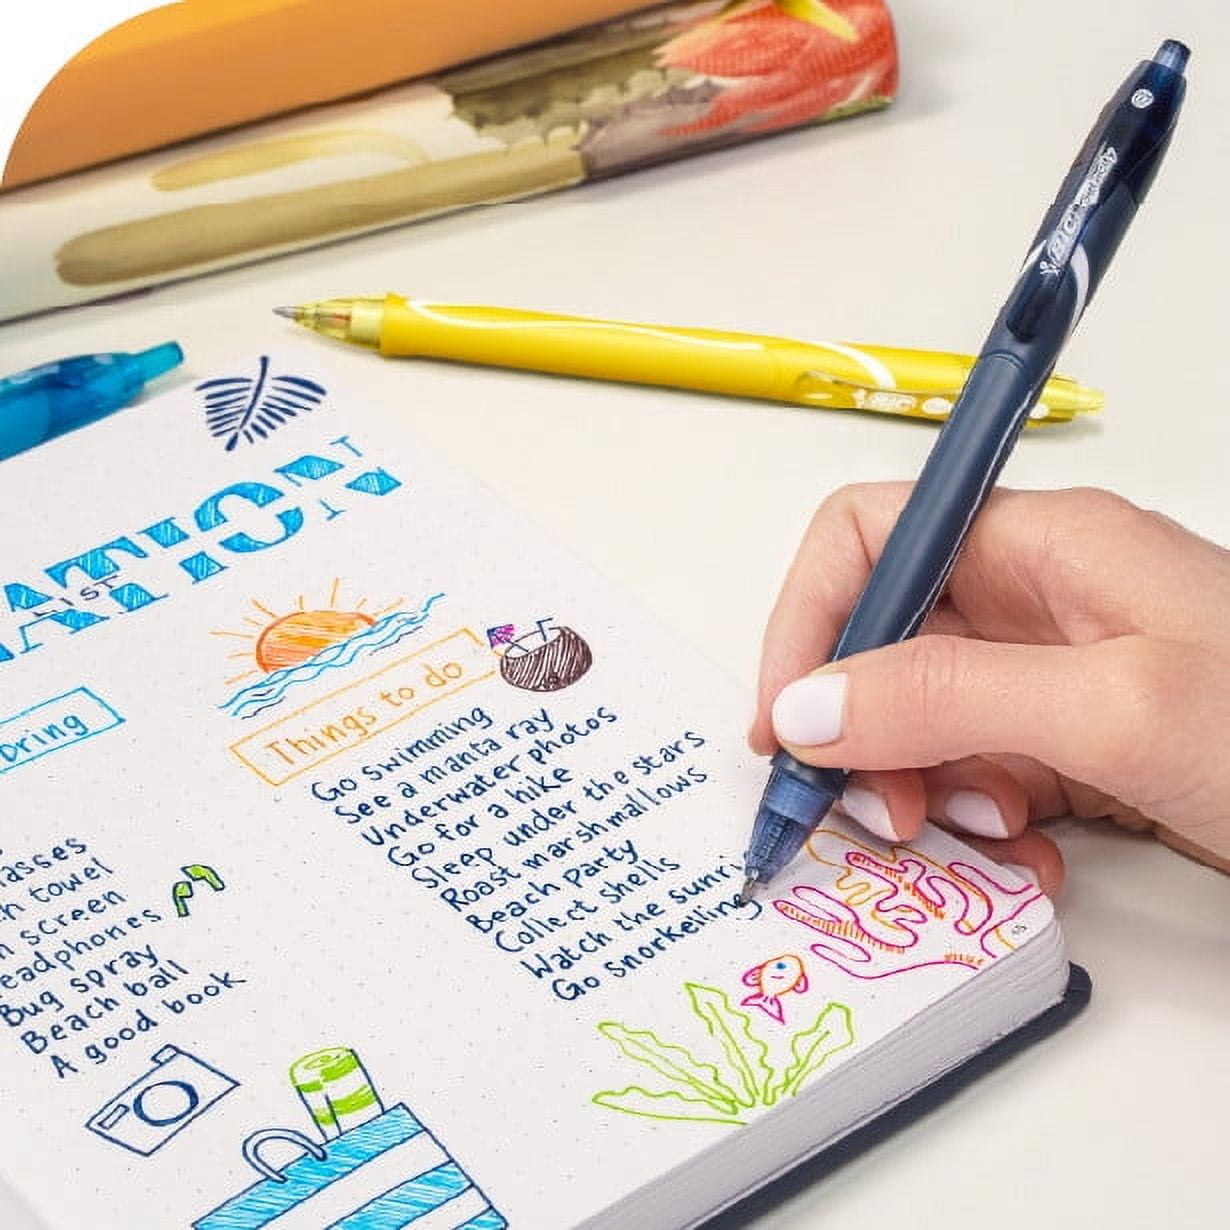 ATION
IST
Things to do
Go swimming
See a manta ray
Underwater photos
Go for a hike
Sleep under the stars
Roast marshmallows
Beach party
Collect shells
Watch the sunri
Go snorkelling
Dring
lasses
h towel
n screen
eadphones
Bug spray
Beach ball
A good book
BIC
BIC